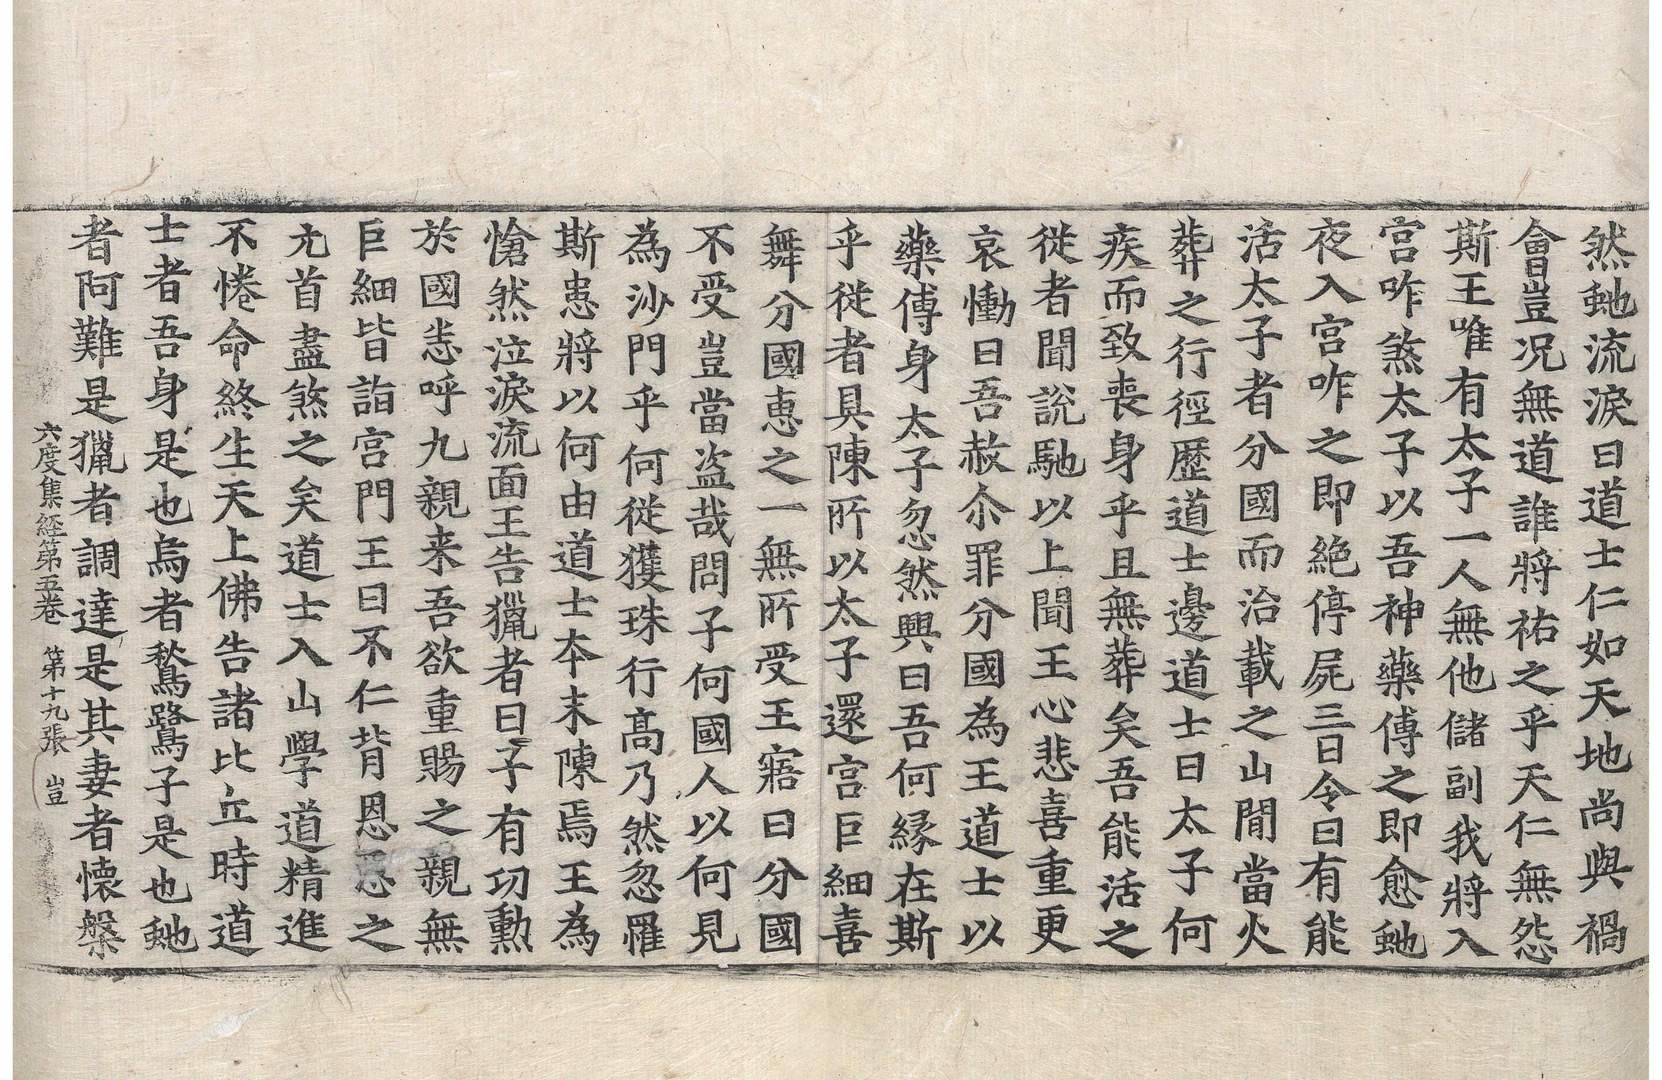 然虵流淚曰道士仁如天地尚與禍
會豈況無道誰將祐之乎天仁無怨
斯王唯有太子一人無他儲副我將入
宮咋煞太子以吾神藥傅之即愈虵
夜入宮咋之即絕停屍三日令曰有能
活太子者分國而治載之山閒當火
葬之行徑歷道士邊道士曰太子何
疾而致喪身乎且無葬矣吾能活之
從者聞說馳以上聞王心悲喜重更
哀慟曰吾赦尒罪分國為王道士以
藥傅身太子忽然興曰吾何緣在斯
乎從者具陳所以太子還宮巨細喜
舞分國惠之一無所受王寤曰分國
不受豈當盜哉問子何國人以何見
為沙門乎何從獲珠行高乃然忽罹
斯患將以何由道士本末陳焉王為
愴然泣淚流面王告獵者曰子有功勳
於國悉呼九親来吾欲重賜之親無
巨細皆詣宮門王曰不仁背恩惡之
元首盡煞之矣道士入山學道精進
不惓命終生天上佛告諸比丘時道
士者吾身是也烏者鶖鷺子是也虵
者阿難是獵者調達是其妻者懷槃
六度集經第五卷　第十九張　豈